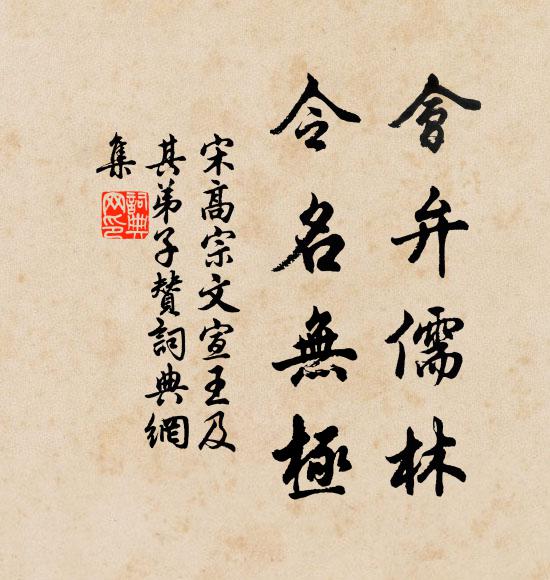 會弁儒林
令名無極
宋高宗文宣王及
其弟子贊詞典網
集
詞典
网印